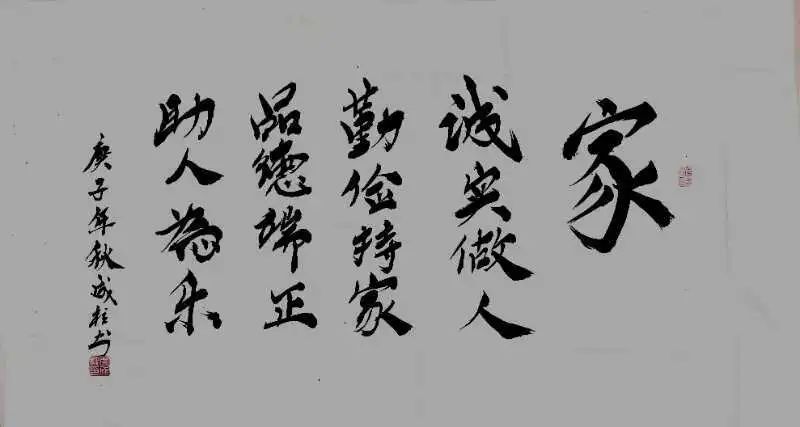 家
诚实做人
勤俭持家
品德端正
助人为乐
庚子年秋成柱书